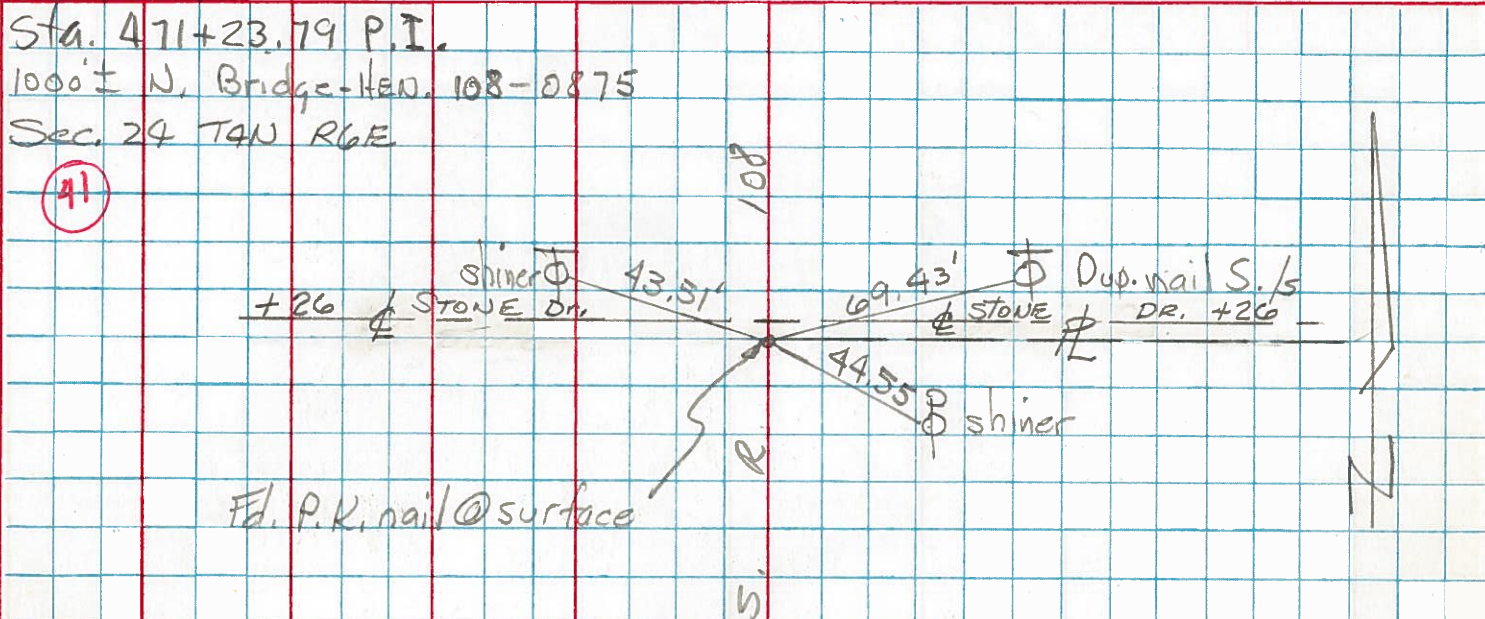 Sta. 471+23.79 P.I.
1000'± N. Bridge-HEN. 108-0875
Sec. 24 T4N R6E
41
108
shiner 43.51' 69.43' Dup. nail S./s
+26 ℄ STONE Dr. ℄ STONE PL DR. +26
44.55 shiner
S. R
Fd. P.K. nail @ surface
N